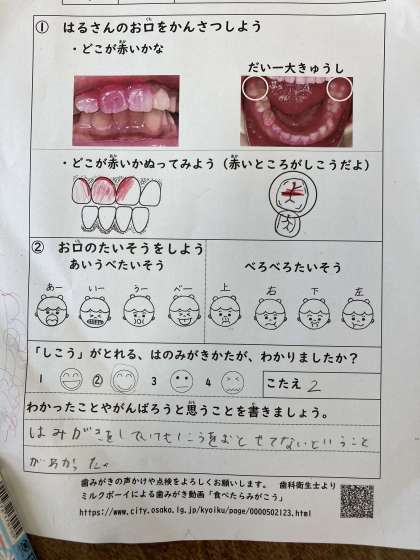 ① はるさんのお口をかんさつしよう
・どこが赤いかな
だい一大きゅうし
・どこが赤いかぬってみよう（赤いところがしこうだよ）
② お口のたいそうをしよう
あいうべたいそう
べろべろたいそう
あー いー うー べー 上 右 下 左
「しこう」がとれる、はのみがきかたが、わかりましたか？
1 ② 3 4 こたえ 2
わかったことやがんばろうと思うことを書きましょう。
はみがきをしていてもしこうをおとせてないということ
がわかった。
歯みがきの声かけや点検をよろしくお願いします。 歯科衛生士より
ミルクボーイによる歯みがき動画「食べたらみがこう」
https://www.city.osaka.lg.jp/kyoiku/page/0000502123.html